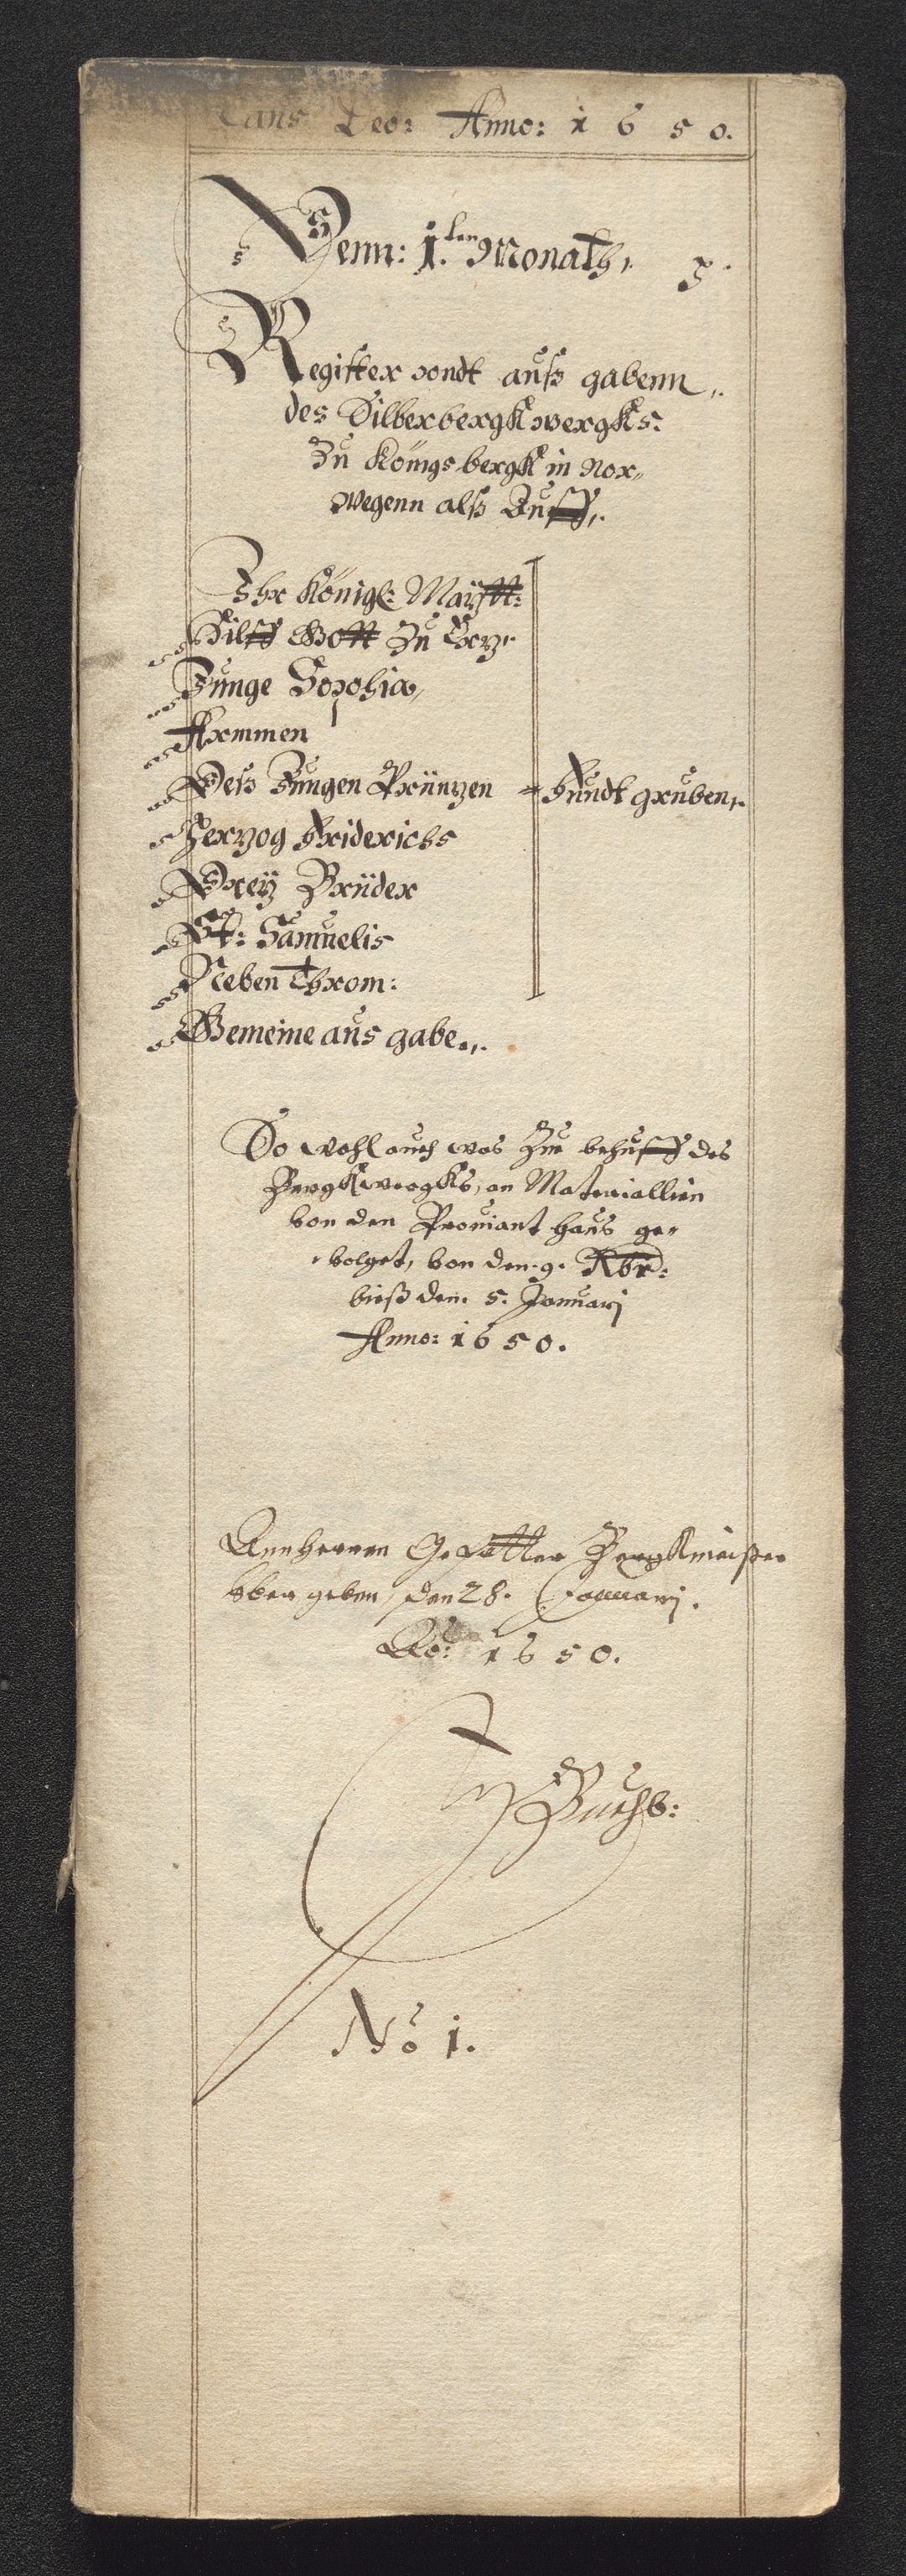 Laus Deo: Anno: 1650.
Denn: 1.ten Monath,
Register vondt außgabenn,
des Silberbergkwergks:
Zu Königsbergk in Nor„
wegenn alß Zuff,
Ihr Königl: Mayestt:
Hilff Gott Zu
Junge Sophia,
Armmen
Deß Jungen Prüntzen Fundt gruben,
Hertzog Friderichs
Drey Brüder
St: Samuelis
Neben Throm:
Gemeine ausgabe,
So wohl auch was Zue behuff des
Bergkwergks, an Materiallien
von den Proviant haus ge„
volget, von den 9. Xbr:
bieß den 5. Januarj
Anno: 1650.
Ann herren Gefatter Bergkmeister
über geben, den 28. Januarj.
Ao: 1650.
Buchh:
No 1.